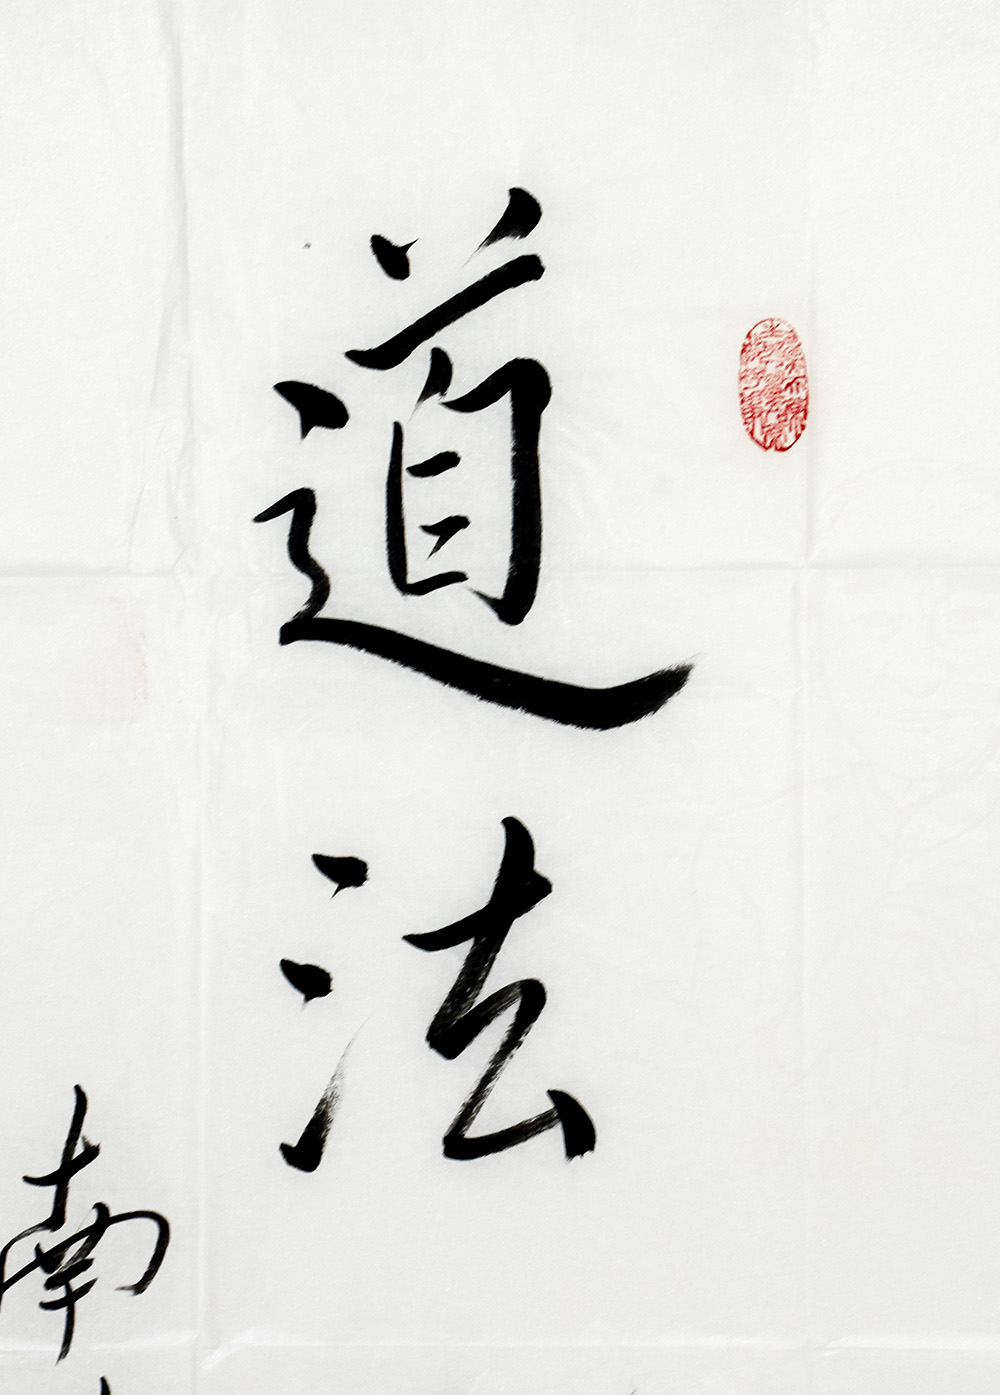 道法
南